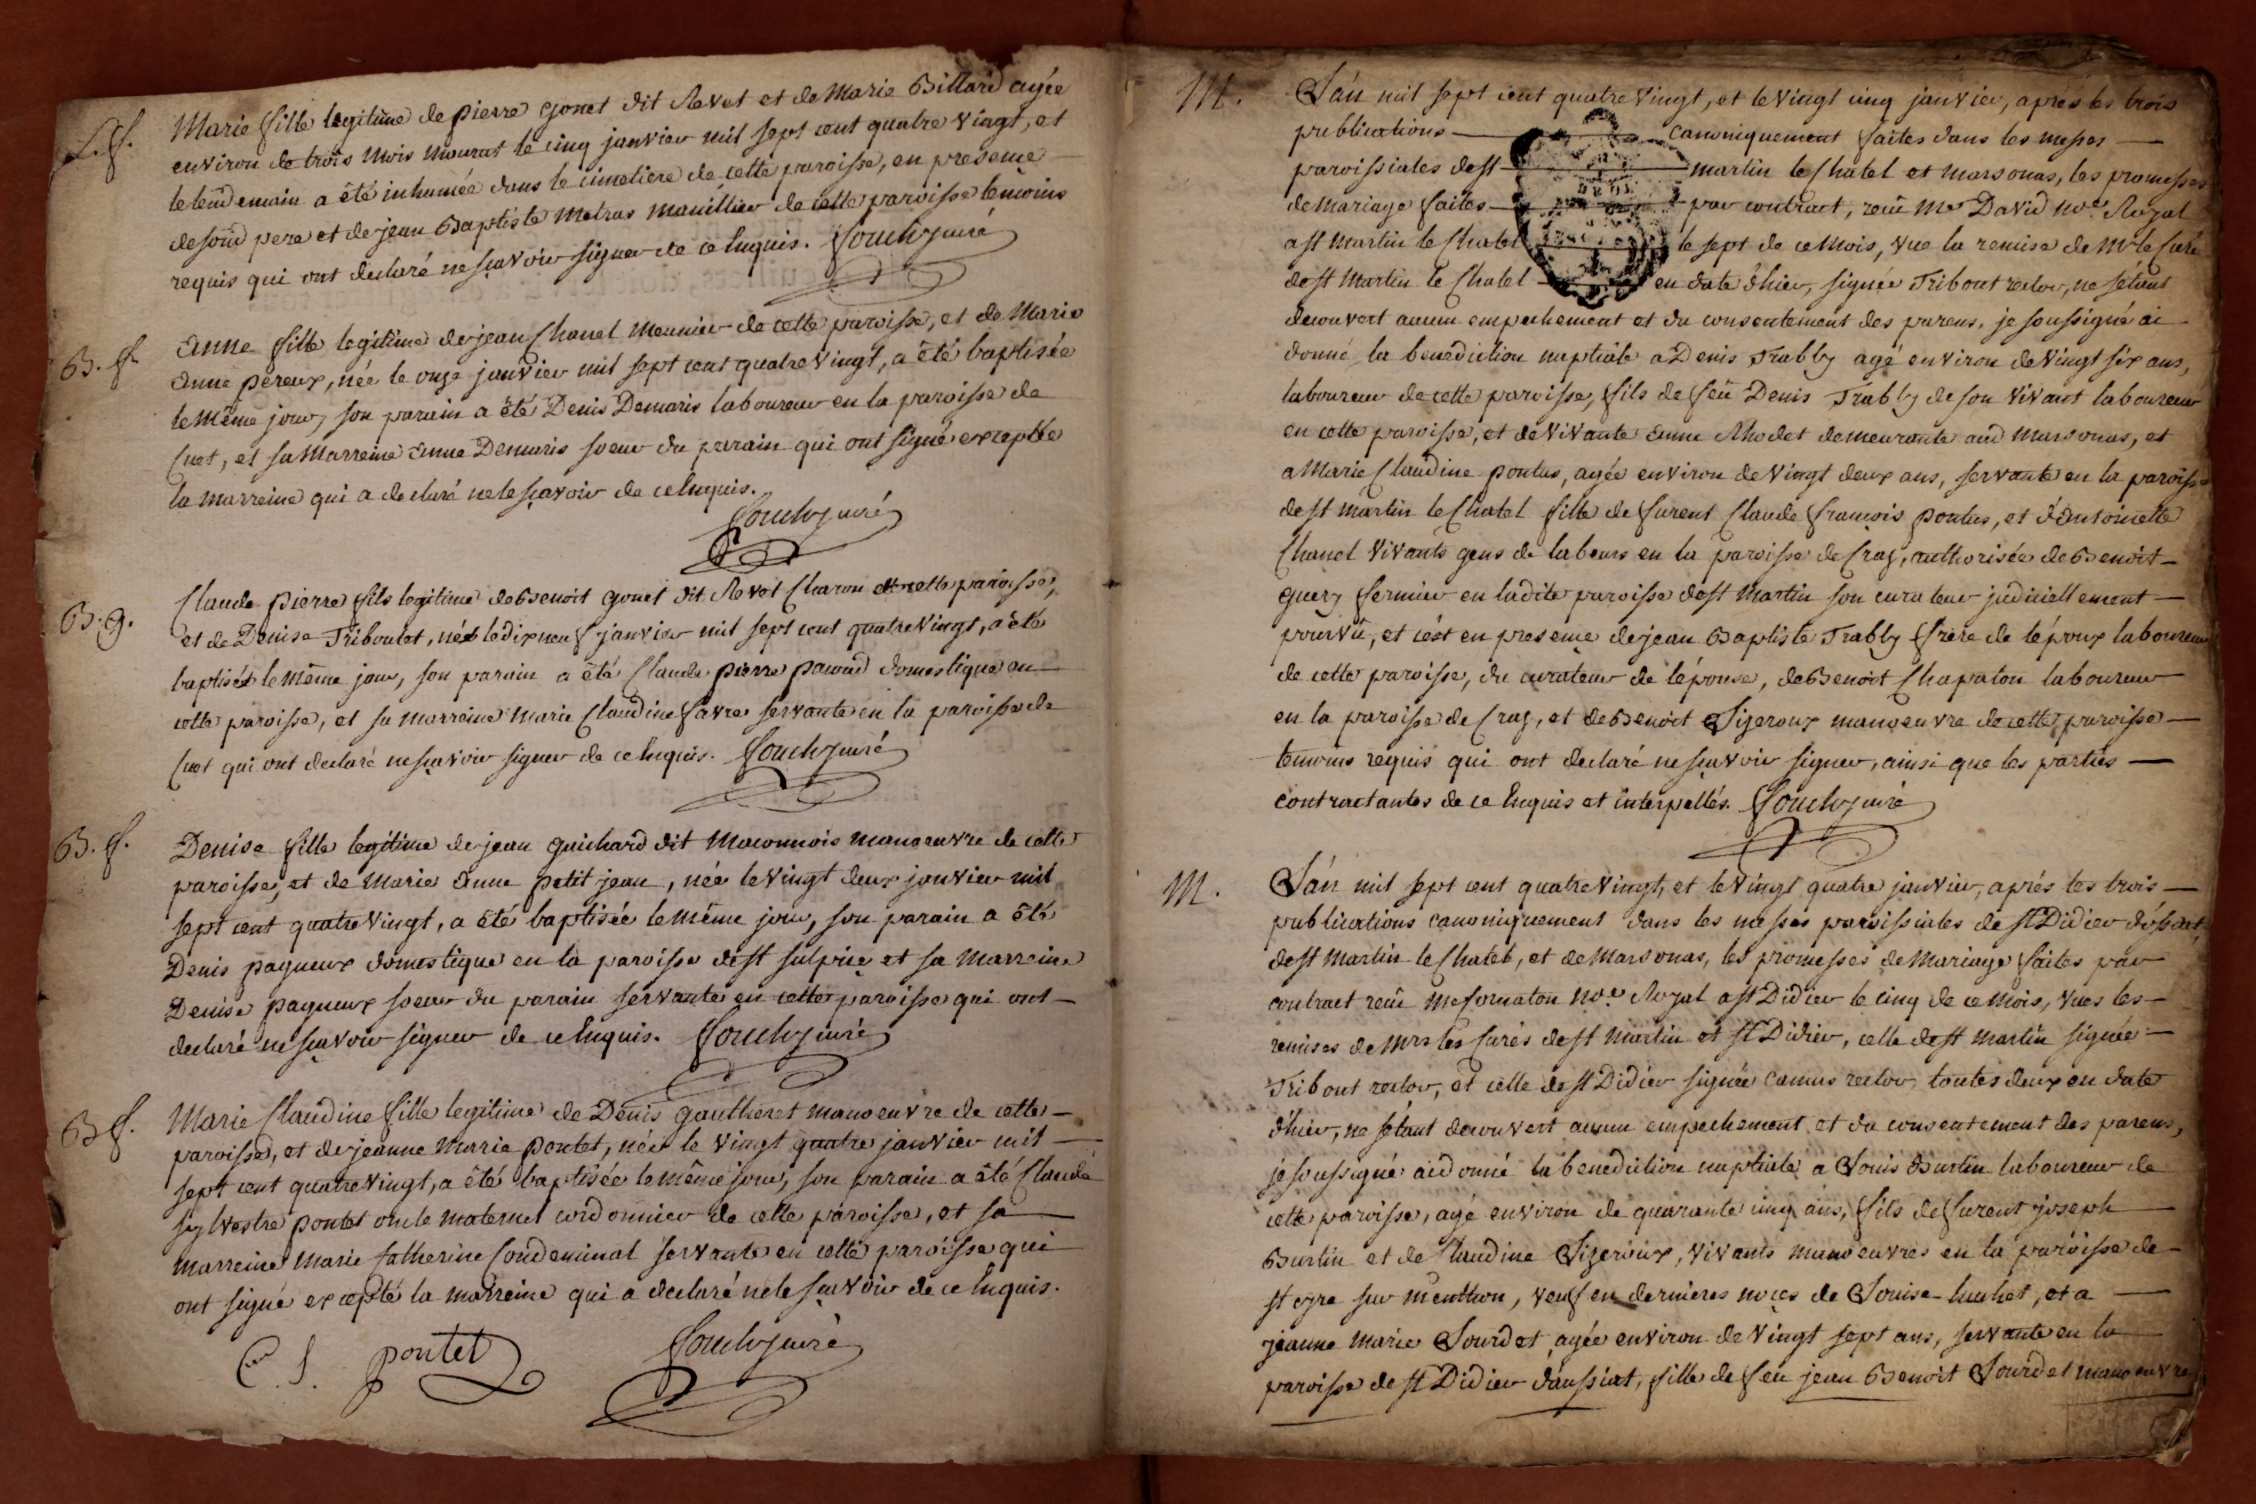 S. f.
Marie fille legitime de pierre gonet dit Revet et de Marie Billard agée
environ de trois mois mourut le cinq janvier mil sept cent quatre vingt, et
le lendemain a été inhumée dans le cimetiere de cette paroisse, en presence
de soud pere et de jean Baptiste Metras manillier de cette paroisse temoins
requis qui ont declaré ne sçavoir signer de ce Enquis. curé
B. f.
Anne fille legitime de jean Chanel Meunier de cette paroisse, et de Marie
Anne pereux, née le onze janvier mil sept cent quatre vingt, a été baptisée
le même jour, son parain a été Denis Demaris laboureur en la paroisse de
Cuet, et sa Marreine Anne Demaris soeur du parain qui ont signé exceptée
la marreine qui a declaré ne le sçavoir de ce Enquis.
curé
B. g.
Claude pierre fils legitime de Benoit gonet dit Revet Charon de cette paroisse,
et de Denise Triboulet, né le dix neuf janvier mil sept cent quatre vingt, a été
baptisé le même jour, son parain a été Claude pierre pacoud domestique en
cette paroisse, et sa marreine Marie Claudine favre servante en la paroisse de
Cuet qui ont declaré ne sçavoir signer de ce Enquis. curé
B. f.
Denise fille legitime de jean guichard dit Maconnois manoeuvre de cette
paroisse, et de Marie Anne petit jean, née le vingt deux janvier mil
sept cent quatre vingt, a été baptisée le même jour, son parain a été
Denis pagneux domestique en la paroisse de st sulpice et sa Marreine
Denise pagneux soeur du parain servante en cette paroisse qui ont
declaré ne sçavoir signer de ce Enquis. curé
B f.
Marie Claudine fille legitime de Denis gautheret manoeuvre de cette
paroisse, et de jeanne Marie pontet, née le vingt quatre janvier mil
sept cent quatre vingt, a été baptisée le même jour, son parain a été Claude
sylvestre pontet oncle maternel cordonnier de cette paroisse, et sa
marreine Marie Catherine Condeminal servante en cette paroisse qui
ont signé excepté la marreine qui a declaré ne le sçavoir de ce Enquis.
C. S. pontet curé
M.
L'an mil sept cent quatre vingt, et le vingt cinq janvier, aprés les trois
publications canoniquement faites dans les messes
paroissiales de st martin le Chatel et marsonas, les promesses
de mariage faites par contract, reçu Me David nore Royal
a st Martin le Chatel le sept de ce mois, vue la remise de Mr le Curé
de st Martin le Chatel en date d'hier, signée Tribout rector, ne s'étant
decouvert aucun empechement et du consentement des parens, je soussigné ai
donné la benediction nuptiale a Denis Trabby agé environ de vingt six ans,
laboureur de cette paroisse, fils de feu Denis Trabby de son vivant laboureur
en cette paroisse, et de vivante Anne Rhodet demeurante aud Marsonas, et
a Marie Claudine pontus, agée environ de vingt deux ans, servante en la paroisse
de st martin le Chatel fille de furent Claude François pontus, et d'Antoinette
Chanel vivants gens de labeurs en la paroisse de Cras, authorisée de Benoit
guery fermier en ladite paroisse de st Martin son curateur judiciellement
pourvû, et c'est en presence de jean Baptiste Trabby frere de l'époux laboureur
de cette paroisse, du curateur de l'épouse, de Benoit Chapaton laboureur
en la paroisse de Cras, et de Benoit Ligeroux manoeuvre de cette paroisse
temoins requis qui ont declaré ne sçavoir signer, ainsi que les parties
contractantes de ce Enquis et interpellés. curé
M.
L'an mil sept cent quatre vingt, et le vingt quatre janvier, aprés les trois
publications canoniquement dans les messes paroissiales de st Didier
de st Martin le Chatel, et de Marsonas, les promesses de Mariage faites par
contract reçu Me fornaton nore Royal a st Didier le cinq de ce mois, vues les
remises de Mrs les Curés de st Martin et st Didier, celle de st Martin signée
Tribout rector, et celle de st Didier signée Camus rector, toutes deux en date
d'hier, ne s'étant decouvert aucun empechement et du consentement des parens,
je soussigné ai donné la benediction nuptiale a Louis Burtin laboureur de
cette paroisse, agé environ de quarante cinq ans, fils de furent joseph
Burtin et de Claudine Ligeroux, vivants manoeuvres en la paroisse de
st cyre sur menthon, veuf en dernieres noces de Louise, et a
jeanne Marie Sourdet agée environ de vingt sept ans, servante en la
paroisse de st Didier d'aussiat, fille de feu jean Benoit Sourdet manoeuvre